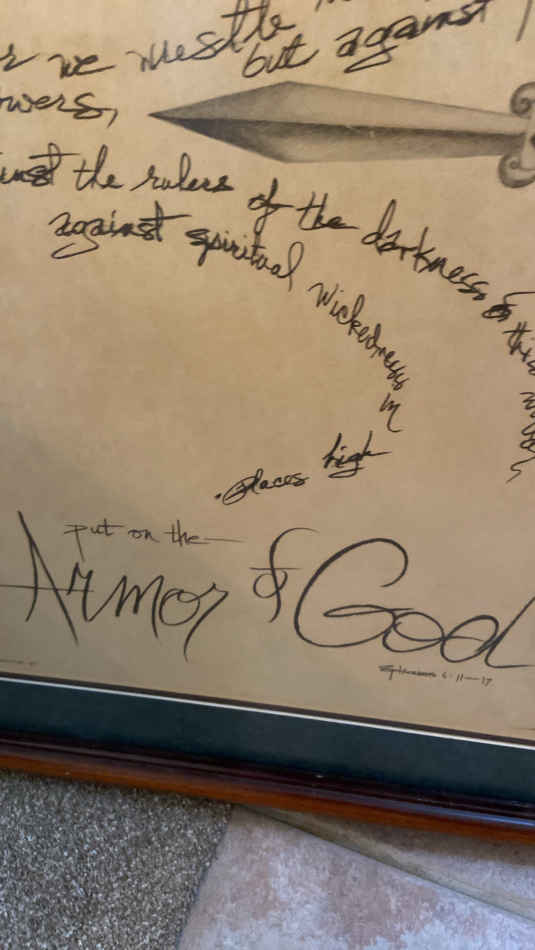 we wrestle
but against
owers,
inst the rulers of the darkness of this
against spiritual wickedness in
high places.
put on the
Armor of God
Ephesians 6:11-17